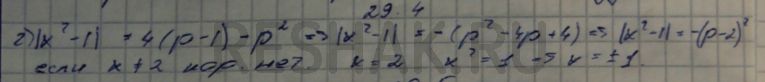 29.4
2) |x²-1| = 4(p-1) - p² => |x²-1| = -(p²-4p+4) => |x²-1| = -(p-2)²
если x ≠ 2 кор. нет x = 2 x² = 1 => x = ±1.
RESHAK.RU